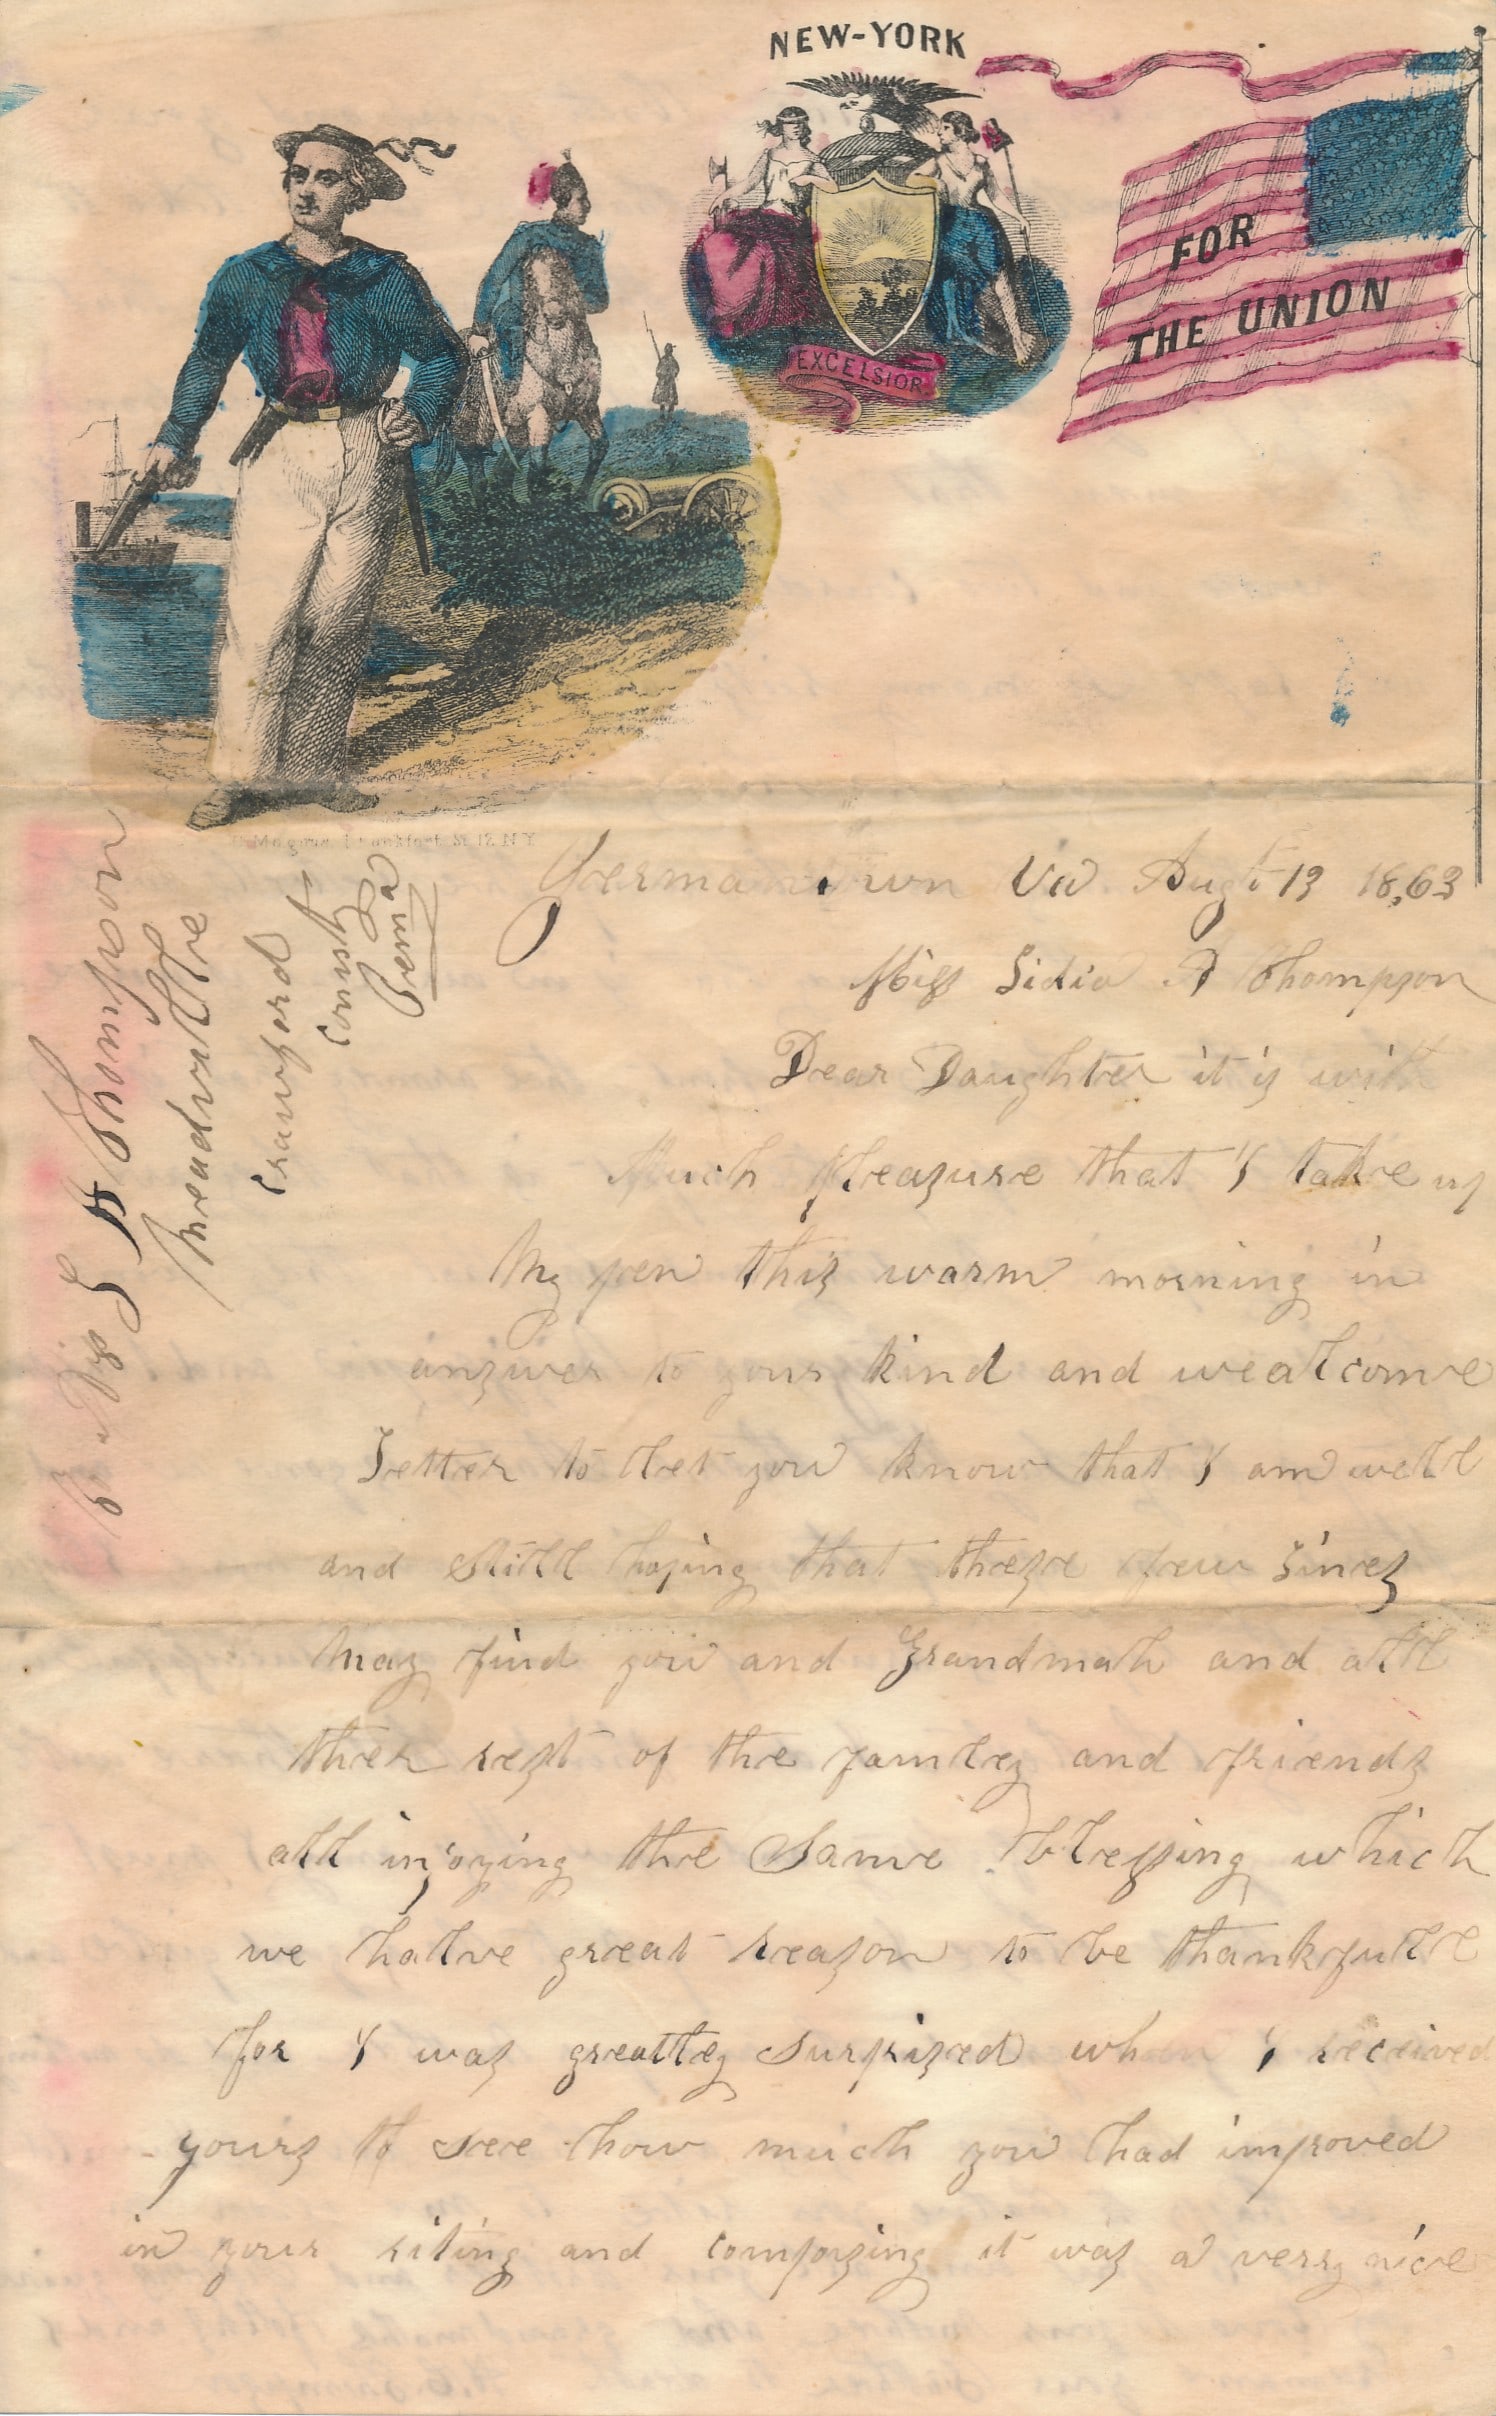 NEW-YORK
FOR
THE UNION
EXCELSIOR
Germantown Va Augt 13 18,63
Miss Lidia A Thompson
Dear Daughter it is with
Much pleasure that I take up
My pen this warm morning in
answer to your kind and wealcome
Letter to llet you know that I am well
and still hoping that these few Lines
May find you and Grandmah and all
ther rest of the famley and friends
all injoying the Same blessing which
we halve great reason to be thankfulle
for I was greatley surprised when I received
yours to see how much you had improved
in your riting and composing it was a very nice
Miss L A Thompson
Meadville
Crawford
County
Penna